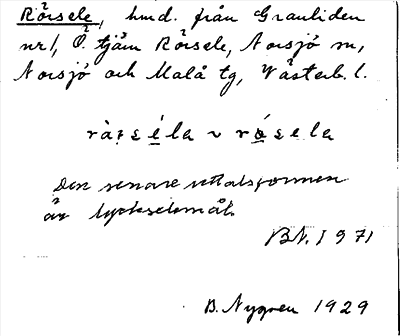 Rörsele, hmd. från Granliden
nr 1, Ö. tjäm Rörsele, Norsjö sn,
Norsjö och Malå tg, Västerb. l.
Den senare uttalsformen
är lyckselemål.
BN. I 971
B. Nygren 1929